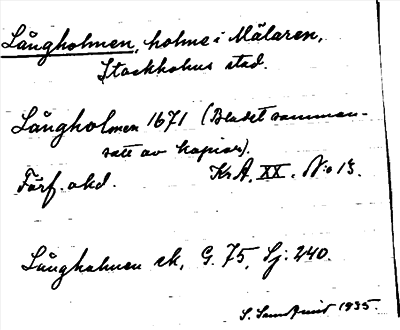 Långholmen, holme i Mälaren,
Stockholms stad.
Långholmen 1671 (Bladet samman-
satt av kopior).
Förf. okd. Kr.A. XX. N:o 13.
Långholmen sk, G. 75, Sj: 240.
S. Sundqvist 1935.